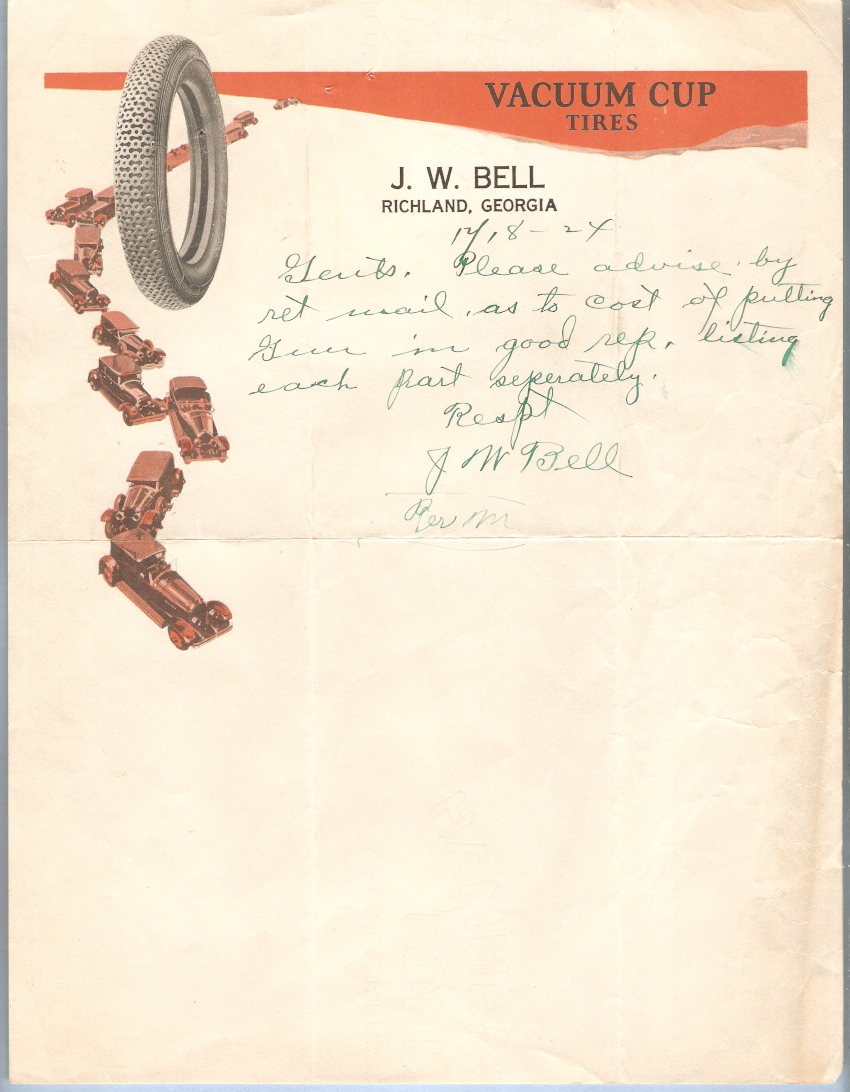 VACUUM CUP
TIRES
J. W. BELL
RICHLAND, GEORGIA
12/18-24
Gents. Please advise by
ret mail, as to cost of putting
Gun in good rep, listing
each part seperately.
Respt
J W Bell
Per M